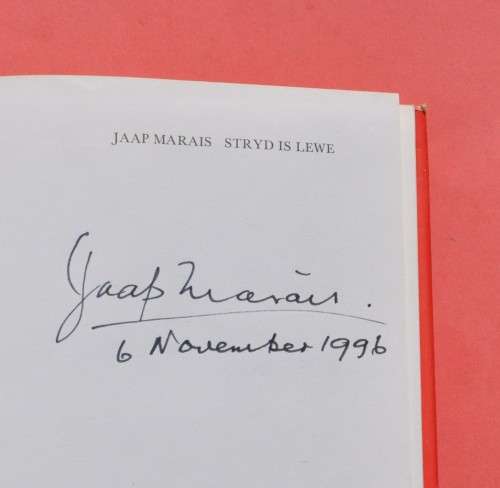 JAAP MARAIS STRYD IS LEWE
Jaap Marais.
6 November 1996